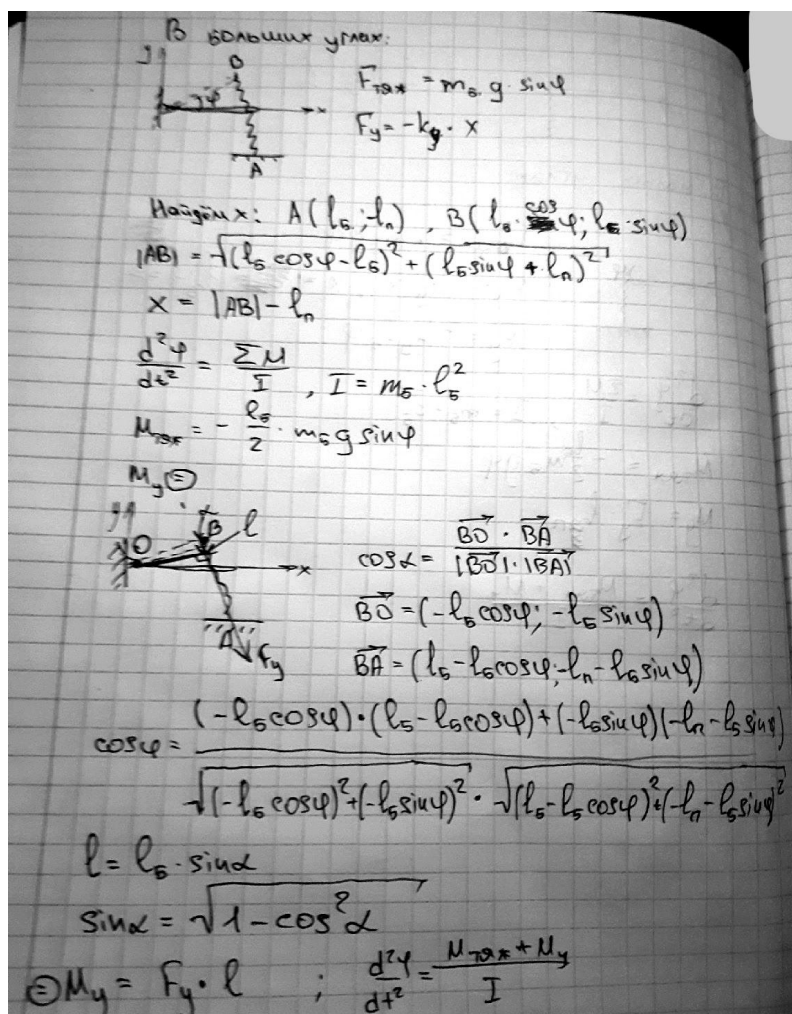 В больших углах:
y
B
φ
x
A
F тяж = m б · g · sinφ
F у = -k g · x
Найдём x: A(l б ; -l п) , B(l б · cos φ; l б · sinφ)
|AB| = √((l б cosφ - l б)² + (l б sinφ + l п)²)
x = |AB| - l п
d²φ/dt² = ΣM/I , I = m б · l б ²
M тяж = - l б/2 · m б g sinφ
M у ⊜
O
B
l
x
A
F у
cosα = BO · BA / |BO| · |BA|
BO = (-l б cosφ; -l б sinφ)
BA = (l б - l б cosφ; -l п - l б sinφ)
cosφ = (-l б cosφ)·(l б - l б cosφ) + (-l б sinφ)(-l п - l б sinφ) / √((-l б cosφ)² + (-l б sinφ)²) · √((l б - l б cosφ)² + (-l п - l б sinφ)²)
l = l б · sinα
sinα = √(1 - cos²α)
⊜ M у = F у · l ; d²φ/dt² = M тяж + M у / I